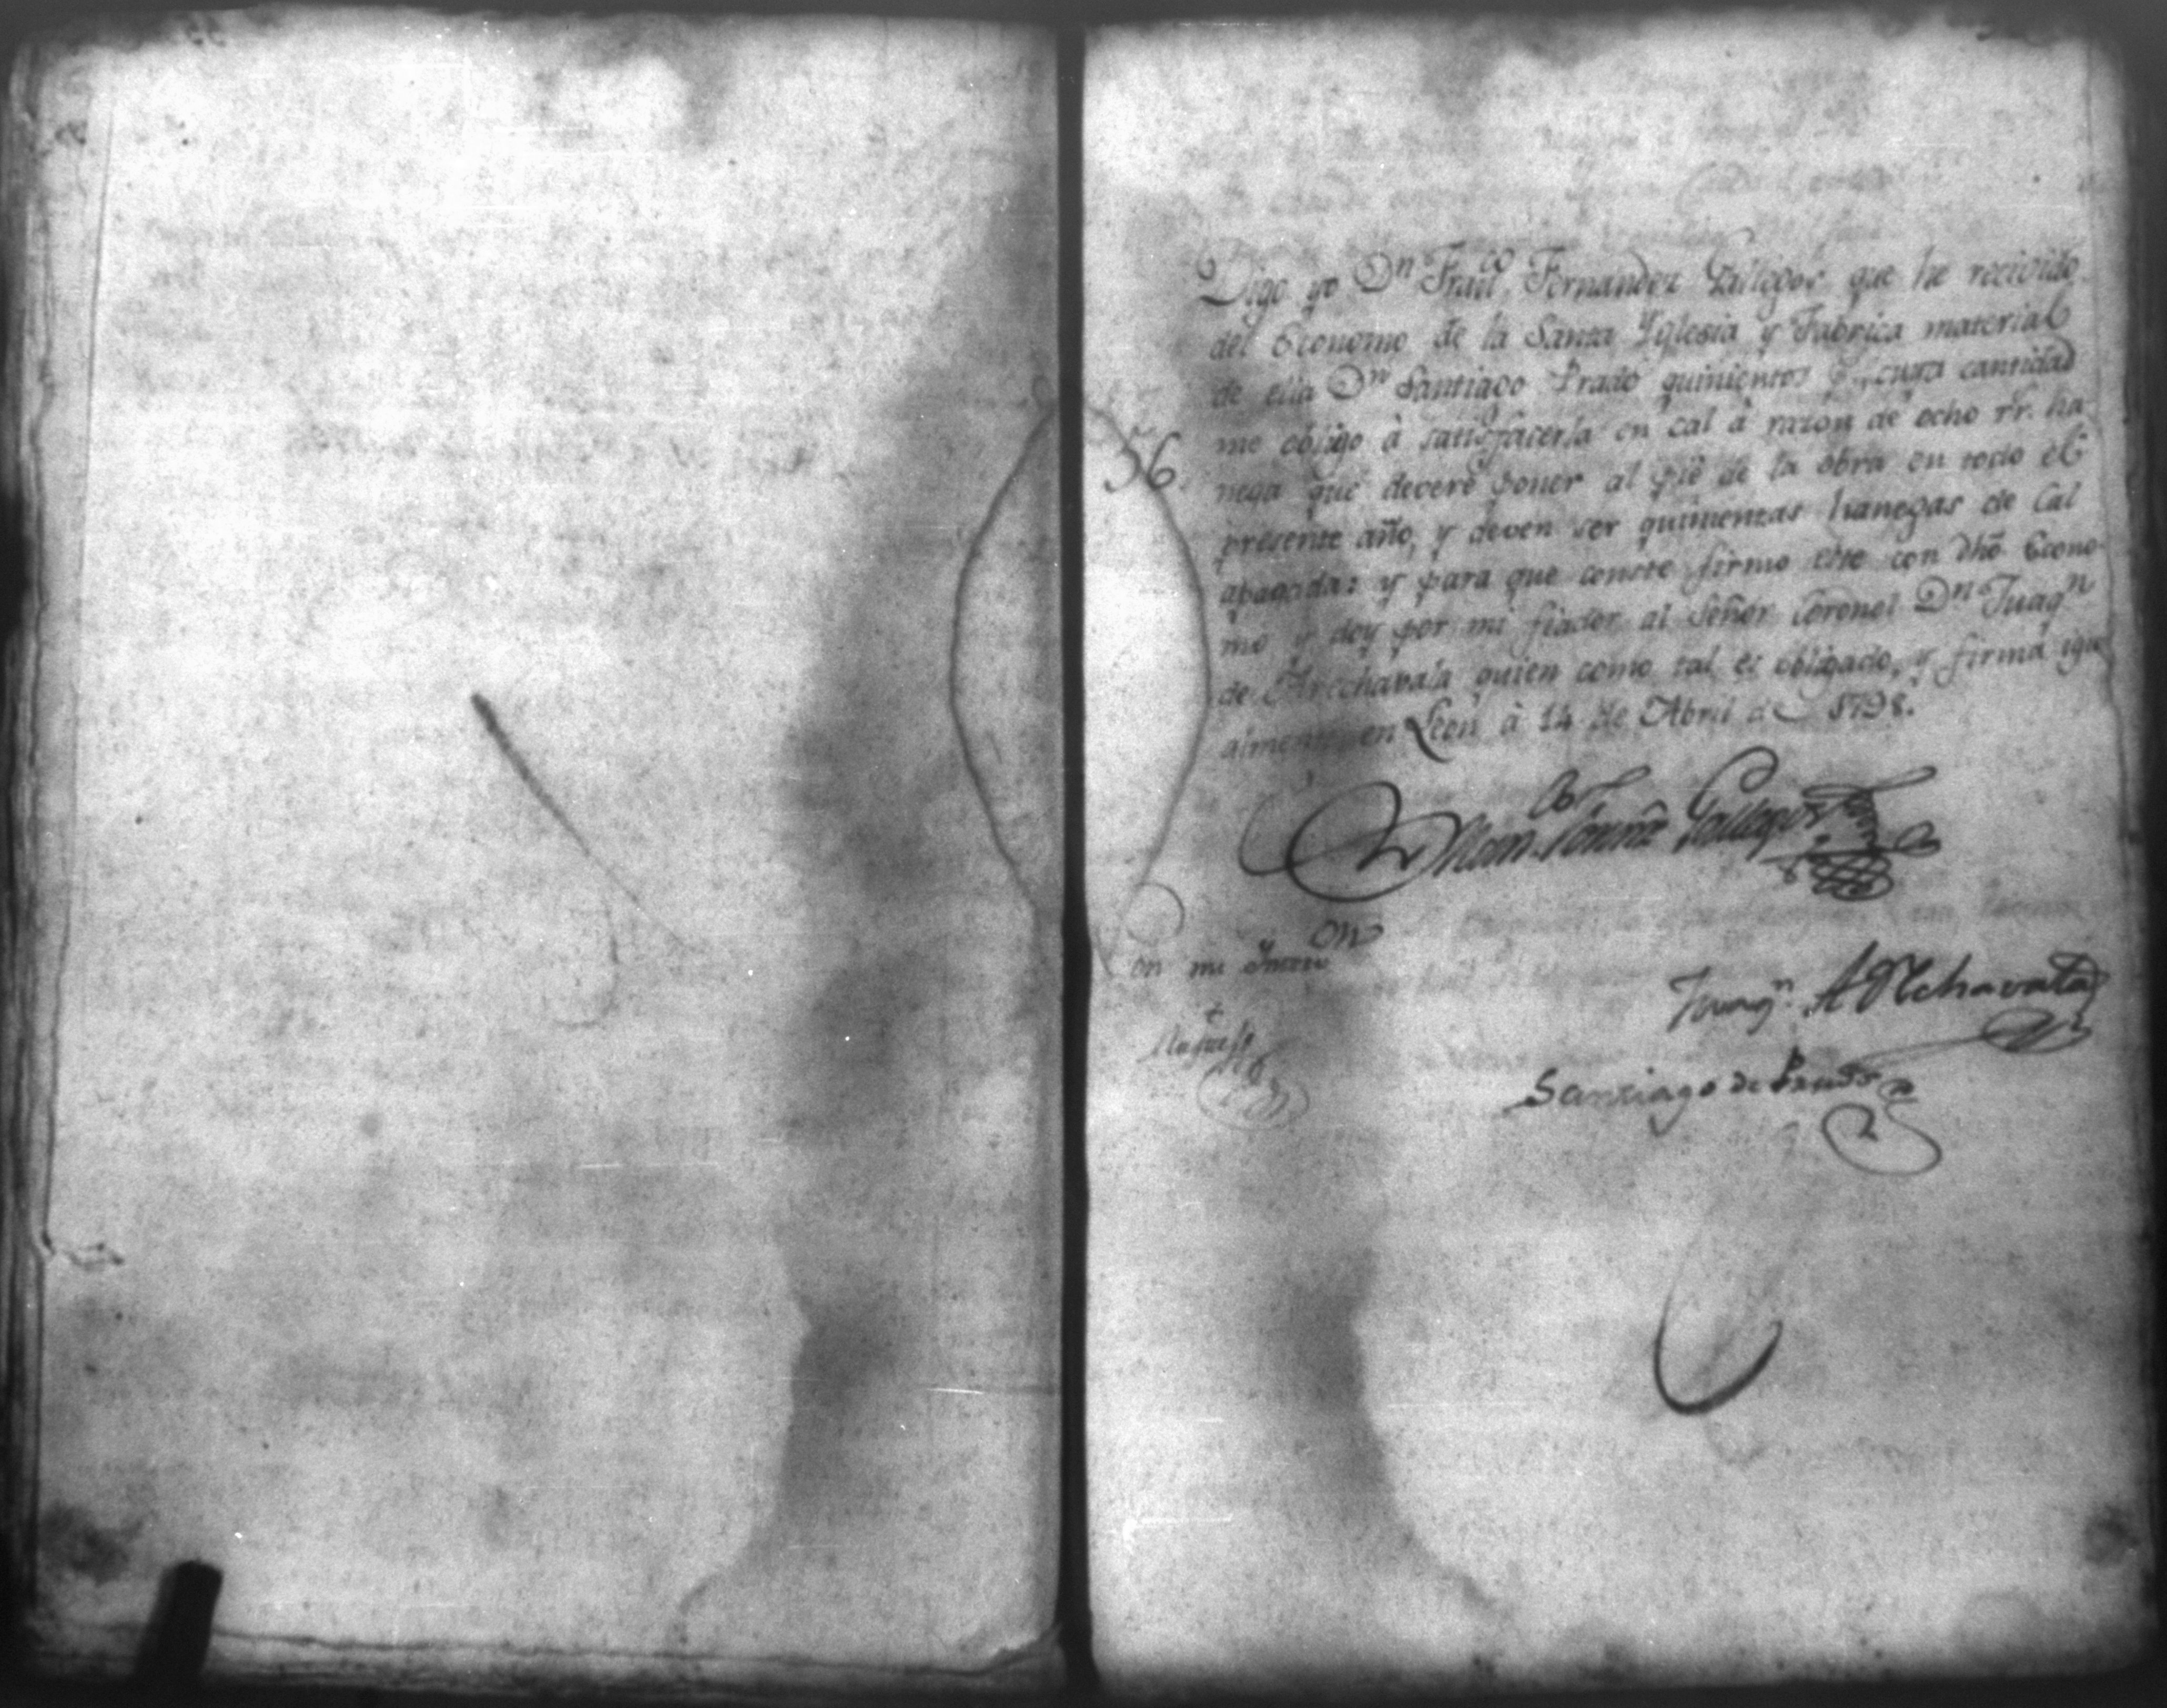 56.
Digo yo Dn Franco Fernandez Gallegos que he recivido
del Economo de la Santa Yglesia y Fabrica material
de ella Dn Santiago Prado quinientos cuya cantidad
me obligo à satisfacerla en cal à razon de ocho rr. ha
nega que deverè poner al piè de la obra en todo el
presente año, y deven ser quinientas hanegas de Cal
apagada: y para que conste firmo este con dho Econo
mo y doy por mi fiador al Señor Coronel Dn Juaqn
de Arechavala quien como tal es obligado, y firma igu
almente en Leon à 14 de Abril de 1798.
Gallegos
on mi
Juaqn. Arechavala
Santiago de Prado